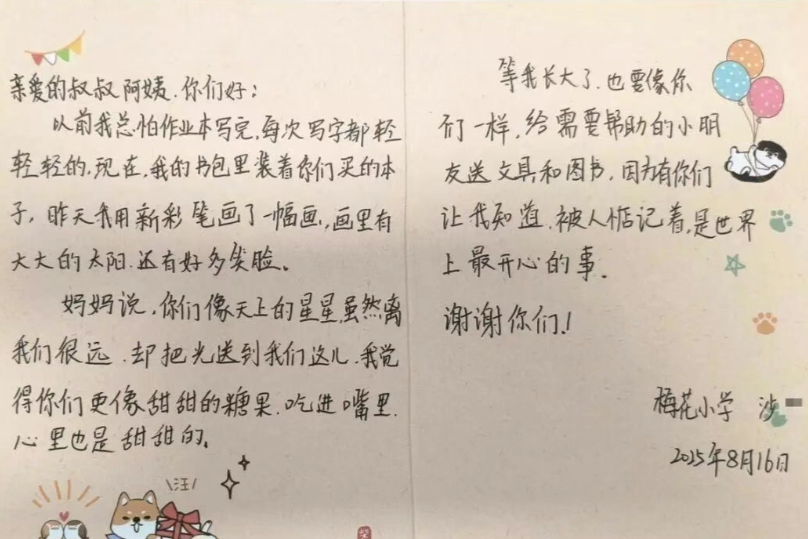 亲爱的叔叔阿姨.你们好：
以前我总怕作业本写完,每次写字都轻
轻轻的.现在,我的书包里装着你们买的本
子，昨天我用新彩笔画了一幅画,画里有
大大的太阳.还有好多笑脸。
妈妈说,你们像天上的星星,虽然离
我们很远.却把光送到我们这儿.我觉
得你们更像甜甜的糖果.吃进嘴里.
心里也是甜甜的。
汪!
等我长大了.也要像你
们一样,给需要帮助的小朋
友送文具和图书,因为有你们
让我知道.被人惦记着,是世界
上最开心的事.
谢谢你们!
梅花小学 沙
2025年8月16日